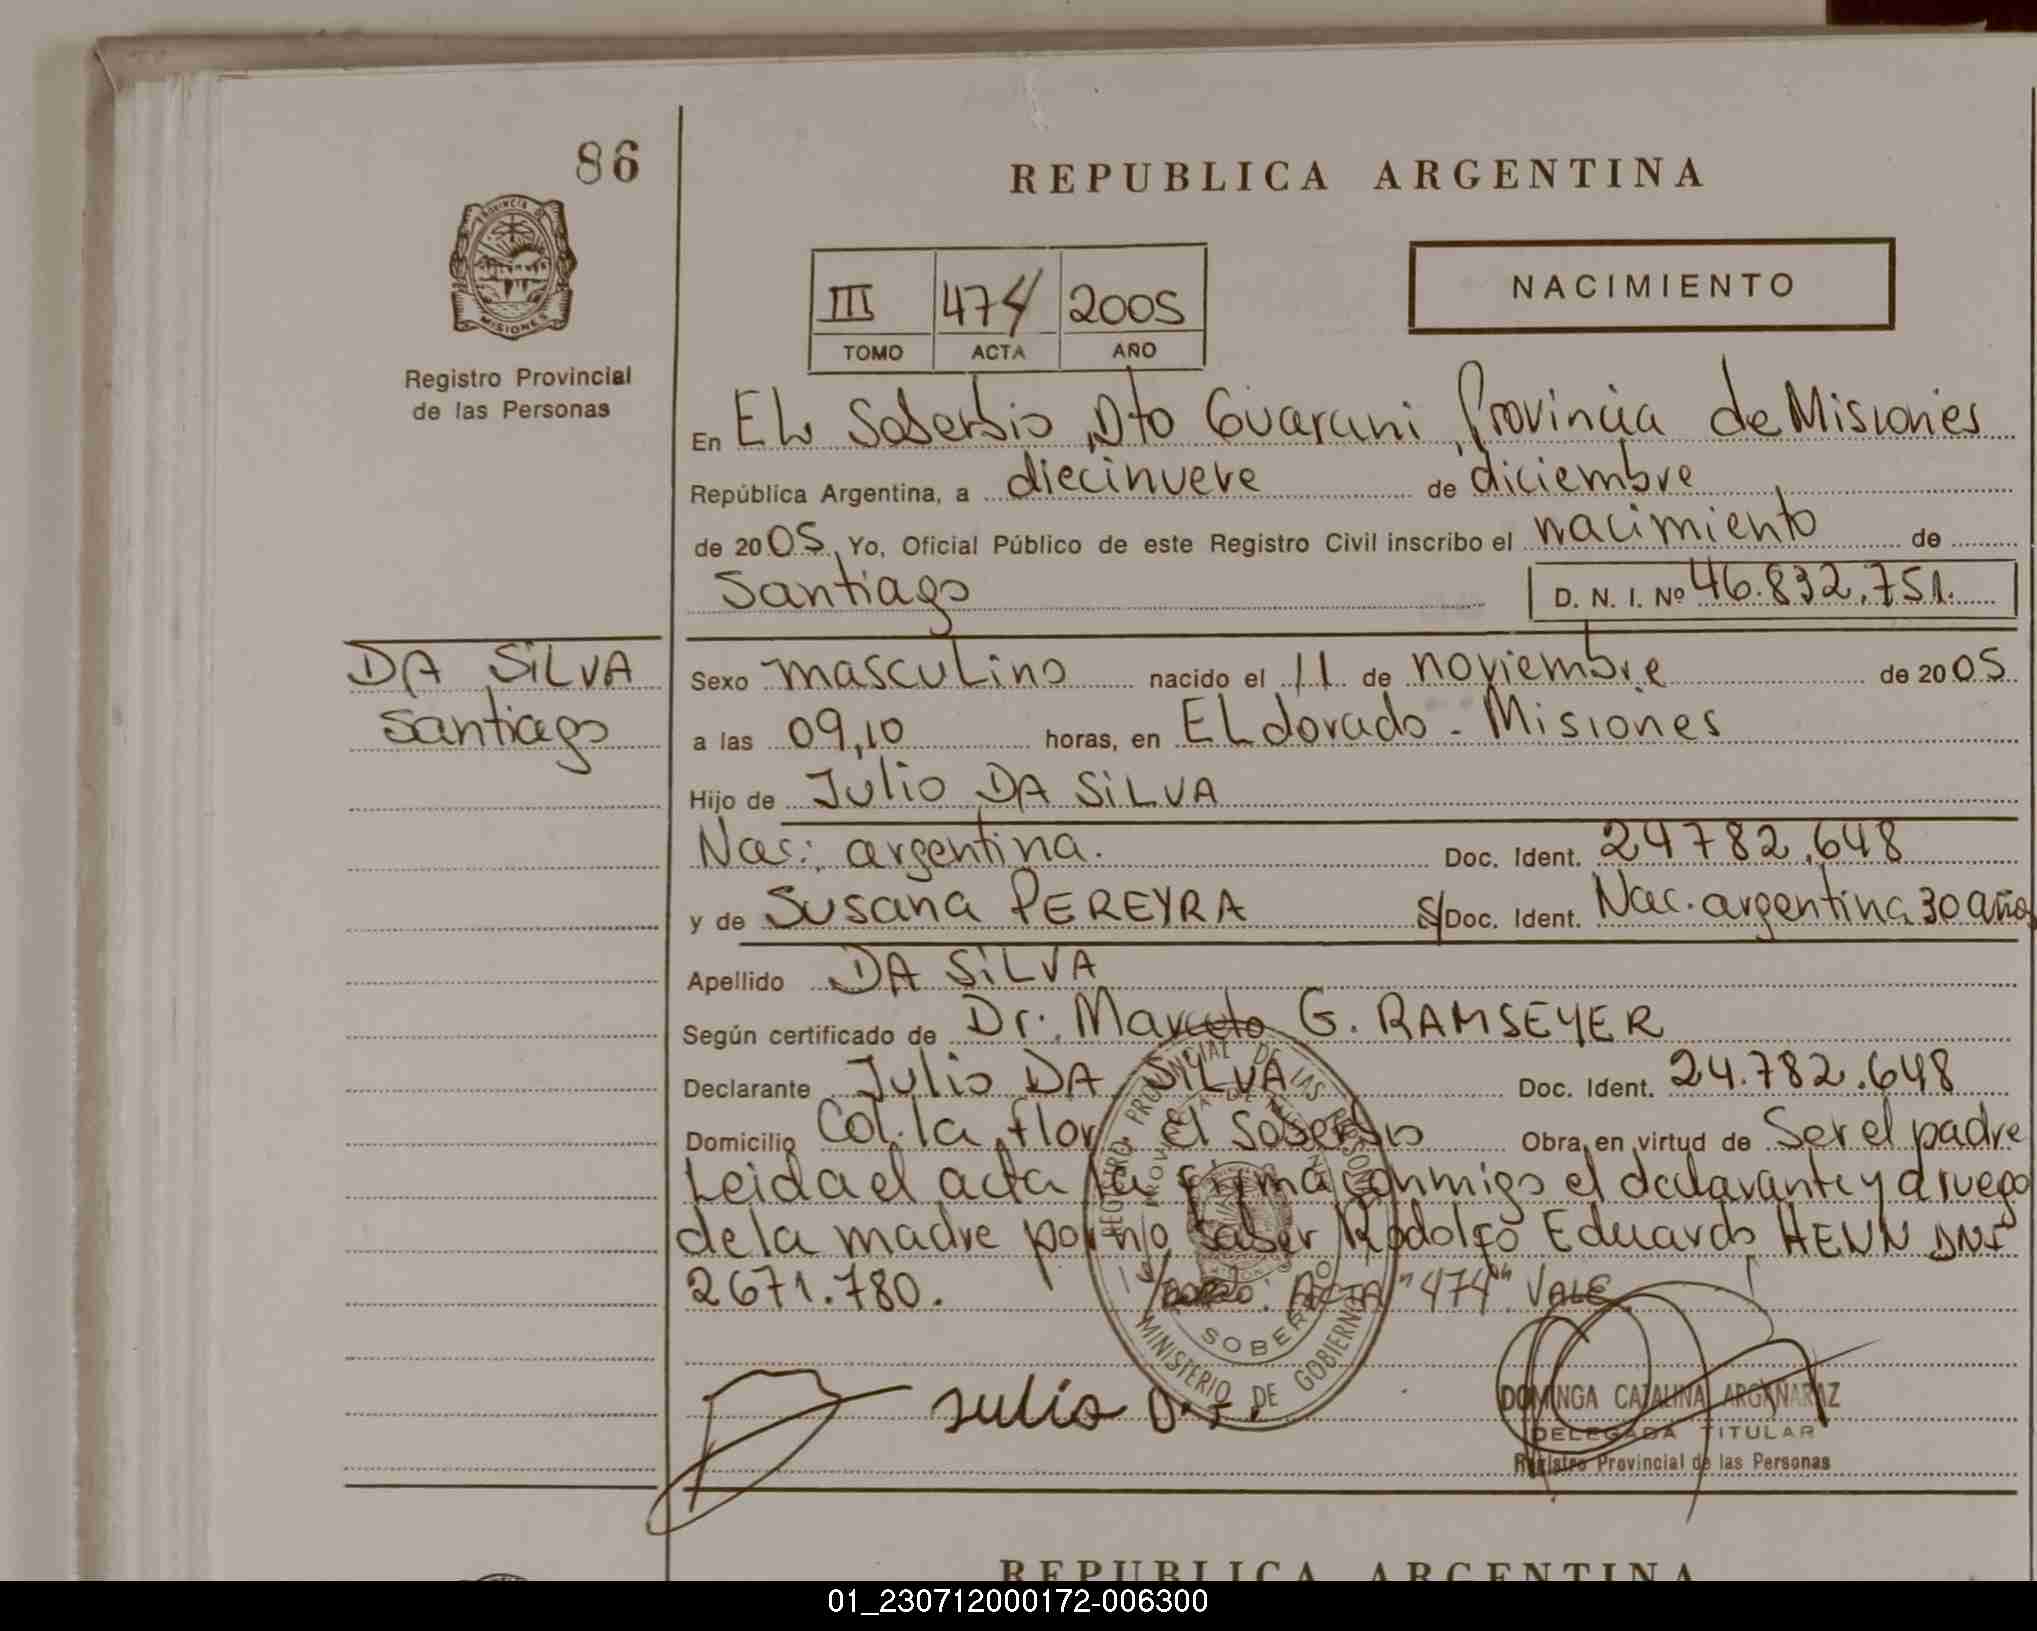 86
REPUBLICA ARGENTINA
PROVINCIA DE
MISIONES
Registro Provincial
de las Personas
III 474 2005
TOMO ACTA AÑO
NACIMIENTO
En EL Soberbio Dto Guarani Provincia de Misiones
República Argentina, a diecinueve de diciembre
de 2005 Yo, Oficial Público de este Registro Civil inscribo el nacimiento de
Santiago D. N. I. Nº 46.832.751.
DA SiLVA
Santiago
Sexo masculino nacido el 11 de noviembre de 2005
a las 09,10 horas, en ELdorado - Misiones
Hijo de Julio DA SiLVA
Nac: argentina. Doc. Ident. 24782.648
y de Susana PEREYRA S/Doc. Ident. Nac. argentina 30 años
Apellido DA SiLVA
Según certificado de Dr. Marcelo G. RAMSEYER
Declarante Julio DA SiLVA Doc. Ident. 24.782.648
Domicilio Col. la flor El Soberbio Obra en virtud de Ser el padre
Leida el acta la firma conmigo el declarante y a ruego
de la madre por no saber Rodolfo Eduardo HENN DNI
2671.780. ACTA "474" VALE
REGISTRO PROVINCIAL DE LAS PERSONAS
MINISTERIO DE GOBIERNO
SOBERBIO
Julio D.
DOMINGA CATALINA ARGAÑARAZ
DELEGADA TITULAR
Registro Provincial de las Personas
REPUBLICA ARGENTINA
01_230712000172-006300